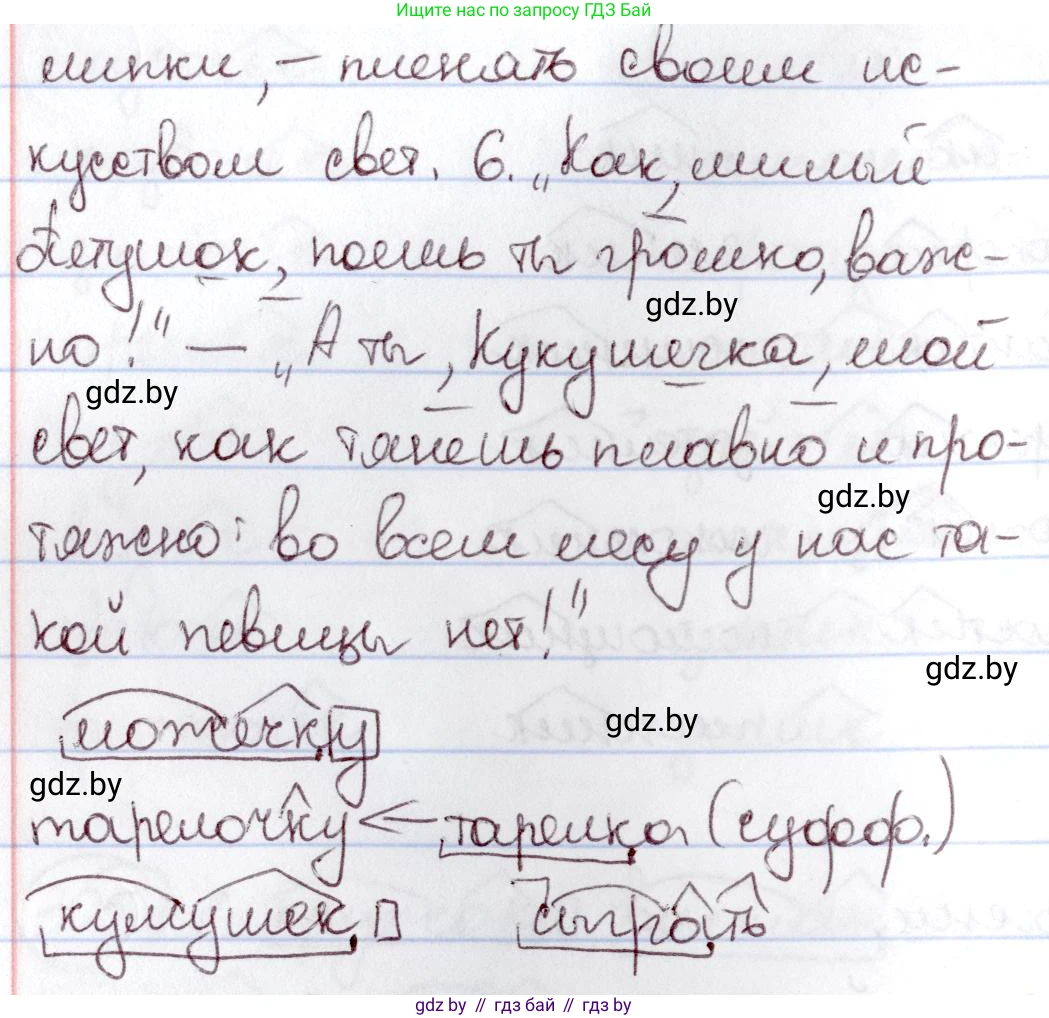 Ищите нас по запросу ГДЗ Бай
липки, – пленять своим ис-
кусством свет. 6. „Как, милый
Петушок, поешь ты громко, важ-
gdz.by
но!" – „А ты, Кукушечка, мой
gdz.by
свет, как тянешь плавно и про-
gdz.by
тяжно: во всем лесу у нас та-
кой певицы нет!"
gdz.by
ложечку
gdz.by
gdz.by
тарелочку ← тарелка (суфф.)
сыграть
gdz.by // гдз бай // гдз by